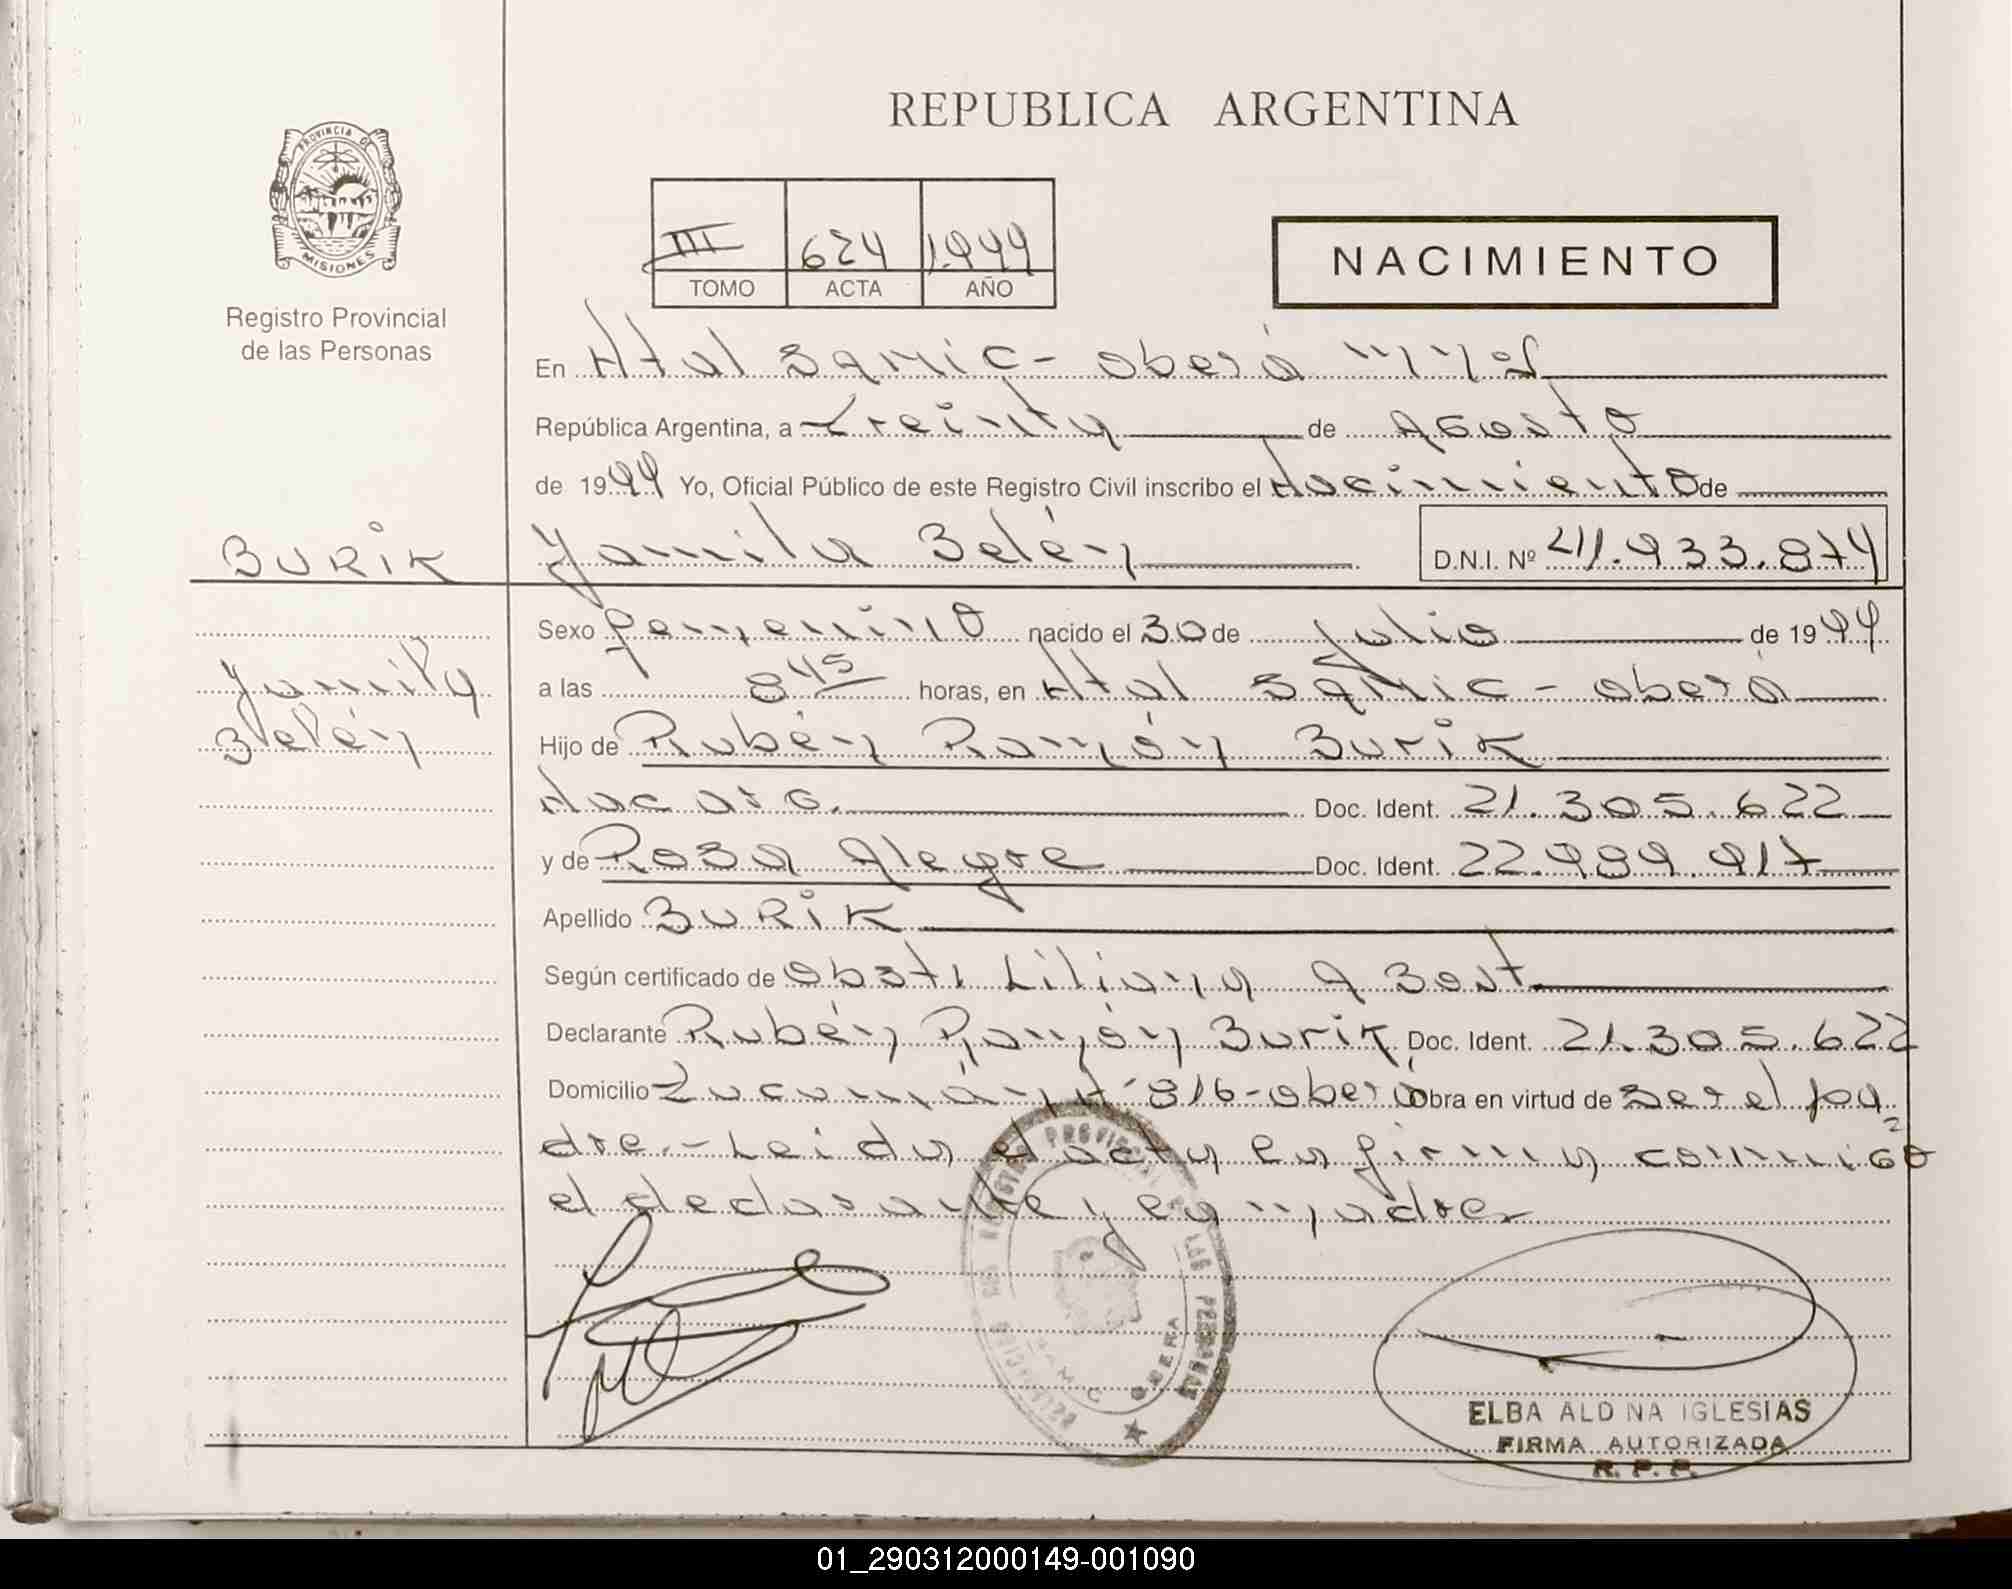 REPUBLICA ARGENTINA
PROVINCIA DE
MISIONES
Registro Provincial
de las Personas
III 624 1.999
TOMO ACTA AÑO
NACIMIENTO
En Htal SAMIC - Oberá Mnes
República Argentina, a treinta de Agosto
de 1999 Yo, Oficial Público de este Registro Civil inscribo el Nacimiento de
BURIK Yamila Belén D.N.I. Nº 41.933.874
Sexo femenino nacido el 30 de Julio de 1999
Yamila a las 8 45 horas, en Htal SAMIC - Oberá
Belén Hijo de Rubén Ramón Burik
Nac arg. Doc. Ident. 21.305.622
y de Rosa Alegre Doc. Ident. 22.989.917
Apellido BURIK
Según certificado de Obst. Liliana A Bost
Declarante Rubén Ramón Burik Doc. Ident. 21.305.622
Domicilio Tucumán Nº 816 - Oberá Obra en virtud de ser el pa
dre.- Leida el acta la firma conmigo
el declarante y la madre
OBERA
ELBA ALDINA IGLESIAS
FIRMA AUTORIZADA
R. P. P.
01_290312000149-001090